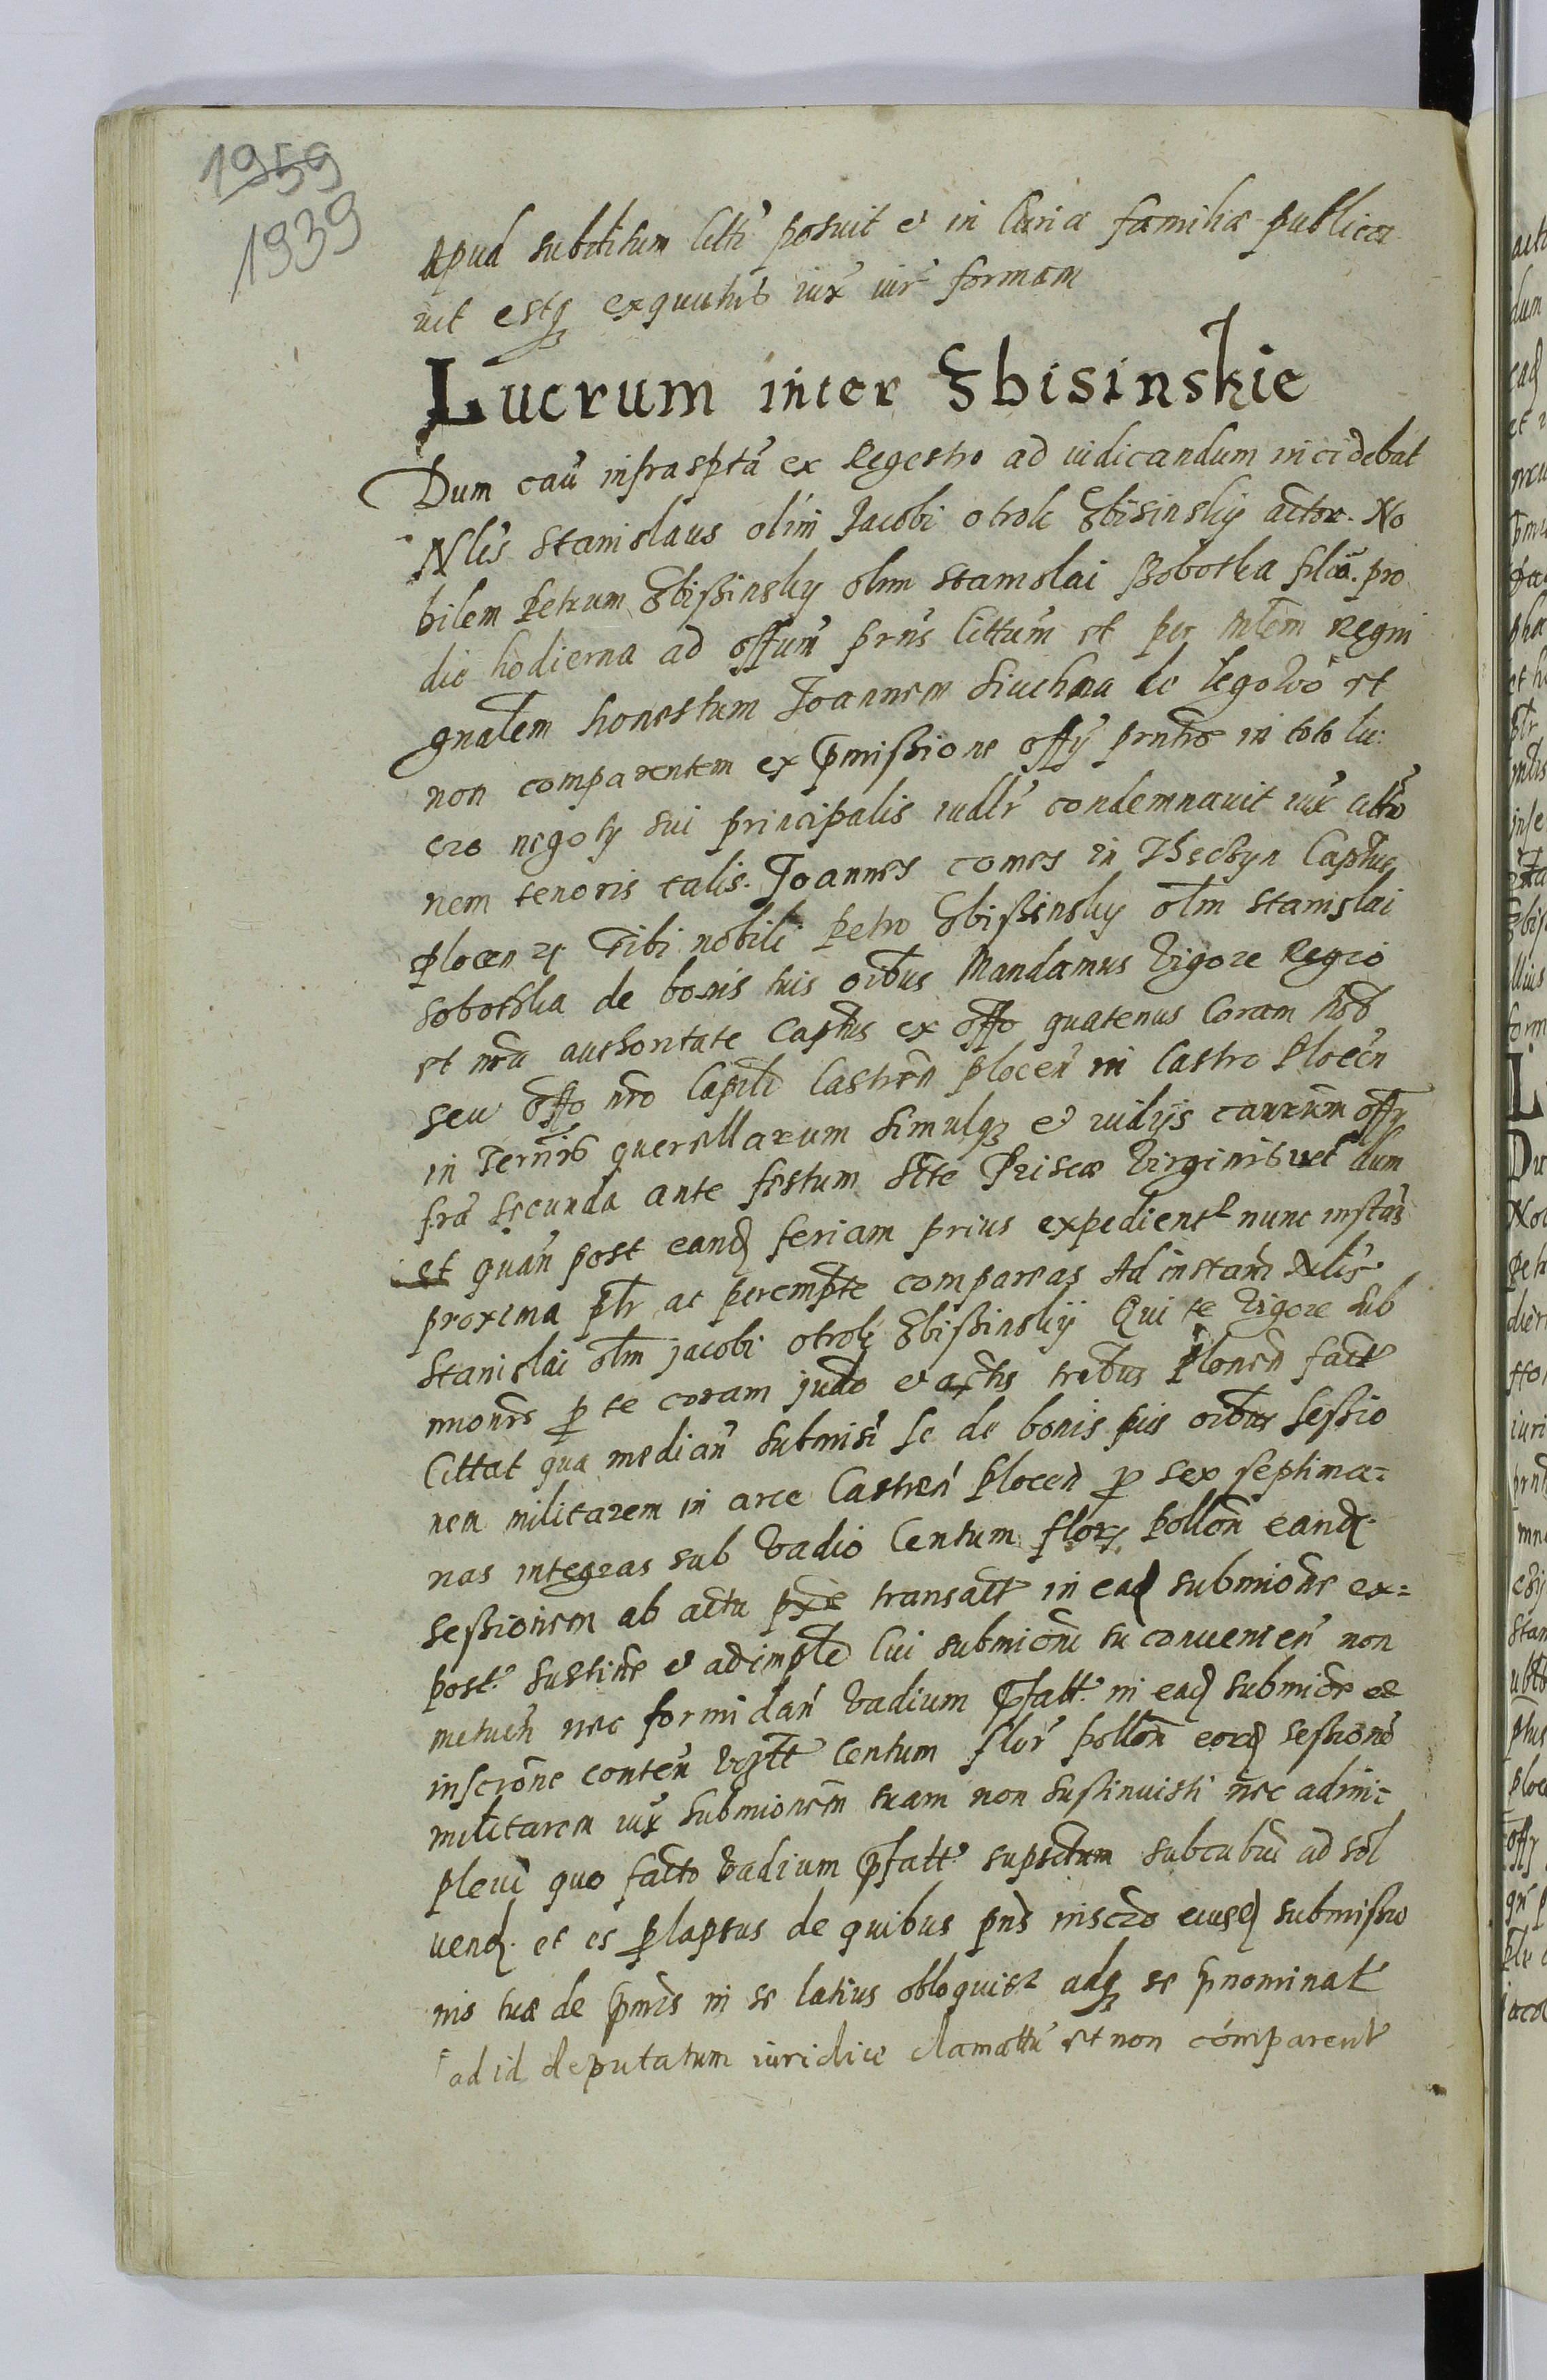 1959
1939
apud subditum litt posuit et in Curia familiæ publica
vit estq exequutus iux iur formam
Lucrum inter Zbisinskie
Dum cau infrasptã ex Regestro ad iudicandum incidebat
Nlis Stanislaus olim Jacobi otrok Zbisinskij actor. No
bilem Petrum Zbißinsky olim Stanislai Sobotka filiũ. pro
die hodierna ad offum prñs Cittatũ et per mlem Regni
gnalem honestum Joannem Siuchna de Legowo et
non comparentem ex pmißione offy prntis in toto lu:
cro negoty sui principalis iudlr condemnavit iux citto
nem tenoris talis. Joannes comes in Theczyn Captus
plocen &c Tibi nobili Petro Zbißinsky olim Stanislai
Sobothka de bonis tuis oibus Mandamus Vigore Regio
et nra authoritate Captus ex offo quatenus Coram nob
seu offo nro Capitli Castren plocen in Castro Plocen
in Termis querellarum simulq et iudijs caurum offy
fra secunda ante festum Scte Priscæ Virginis vel dum
et quan post eand feriam prius expedient nunc instan
proxima ptr ac perempte compareas Ad instam Nlis
Stanislai olim jacobi otrok Zbißinskij Qui te Vigore sub
mionis p te coram judo et actis trebus Plonen fact
Cittat qua median submisi se de bonis suis oibus Seßio
nem militarem in arce Castren Plocen p sex septima=
nas integras sub Vadio Centum flor pollon eand
seßionem ab actu transact in ead submione ex=
post sustine et adimple Cui submioni tu convenien non
metuen nec formidan Vadium pfatt in ead submione et
inscrone conten vizlt Centum flor pollon eord seßione
militarem iux submionem tuam non sustinuisti nec adim=
plevi quo facto Vadium pfatt supsctum subcubui ad sol
vend. et es plapsus de quibus pns inscro eiusd submißio
nis tuæ de pmis in se latius obloquit adq se pnominat
ad id deputatum iuridice clamattu et non comparent